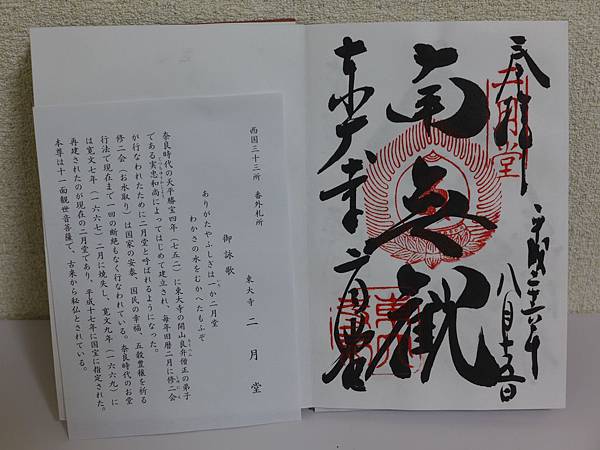 奉拝
二月堂
平成二十六年
八月十五日
南無観
東大寺 二月堂
西国三十三所 番外札所
東大寺 二月堂
御詠歌
ありがたやふしぎは一か二月堂
わかさの水をむかへたもふぞ
奈良時代の天平勝宝四年（七五二）に東大寺の開山良弁僧正の弟子
である実忠和尚によってはじめて建立され、毎年旧暦二月に修二会
が行なわれたために二月堂と呼ばれるようになった。
修二会（お水取り）は国家の安泰、国民の幸福、五穀豊穣を祈る
行法で現在まで一回の断絶もなく行なわれている。奈良時代のお堂
は寛文七年（一六六七）二月に焼失し、寛文九年（一六六九）に
再建されたのが現在の二月堂であり、平成十七年に国宝に指定された。
本尊は十一面観世音菩薩で、古来から秘仏とされている。